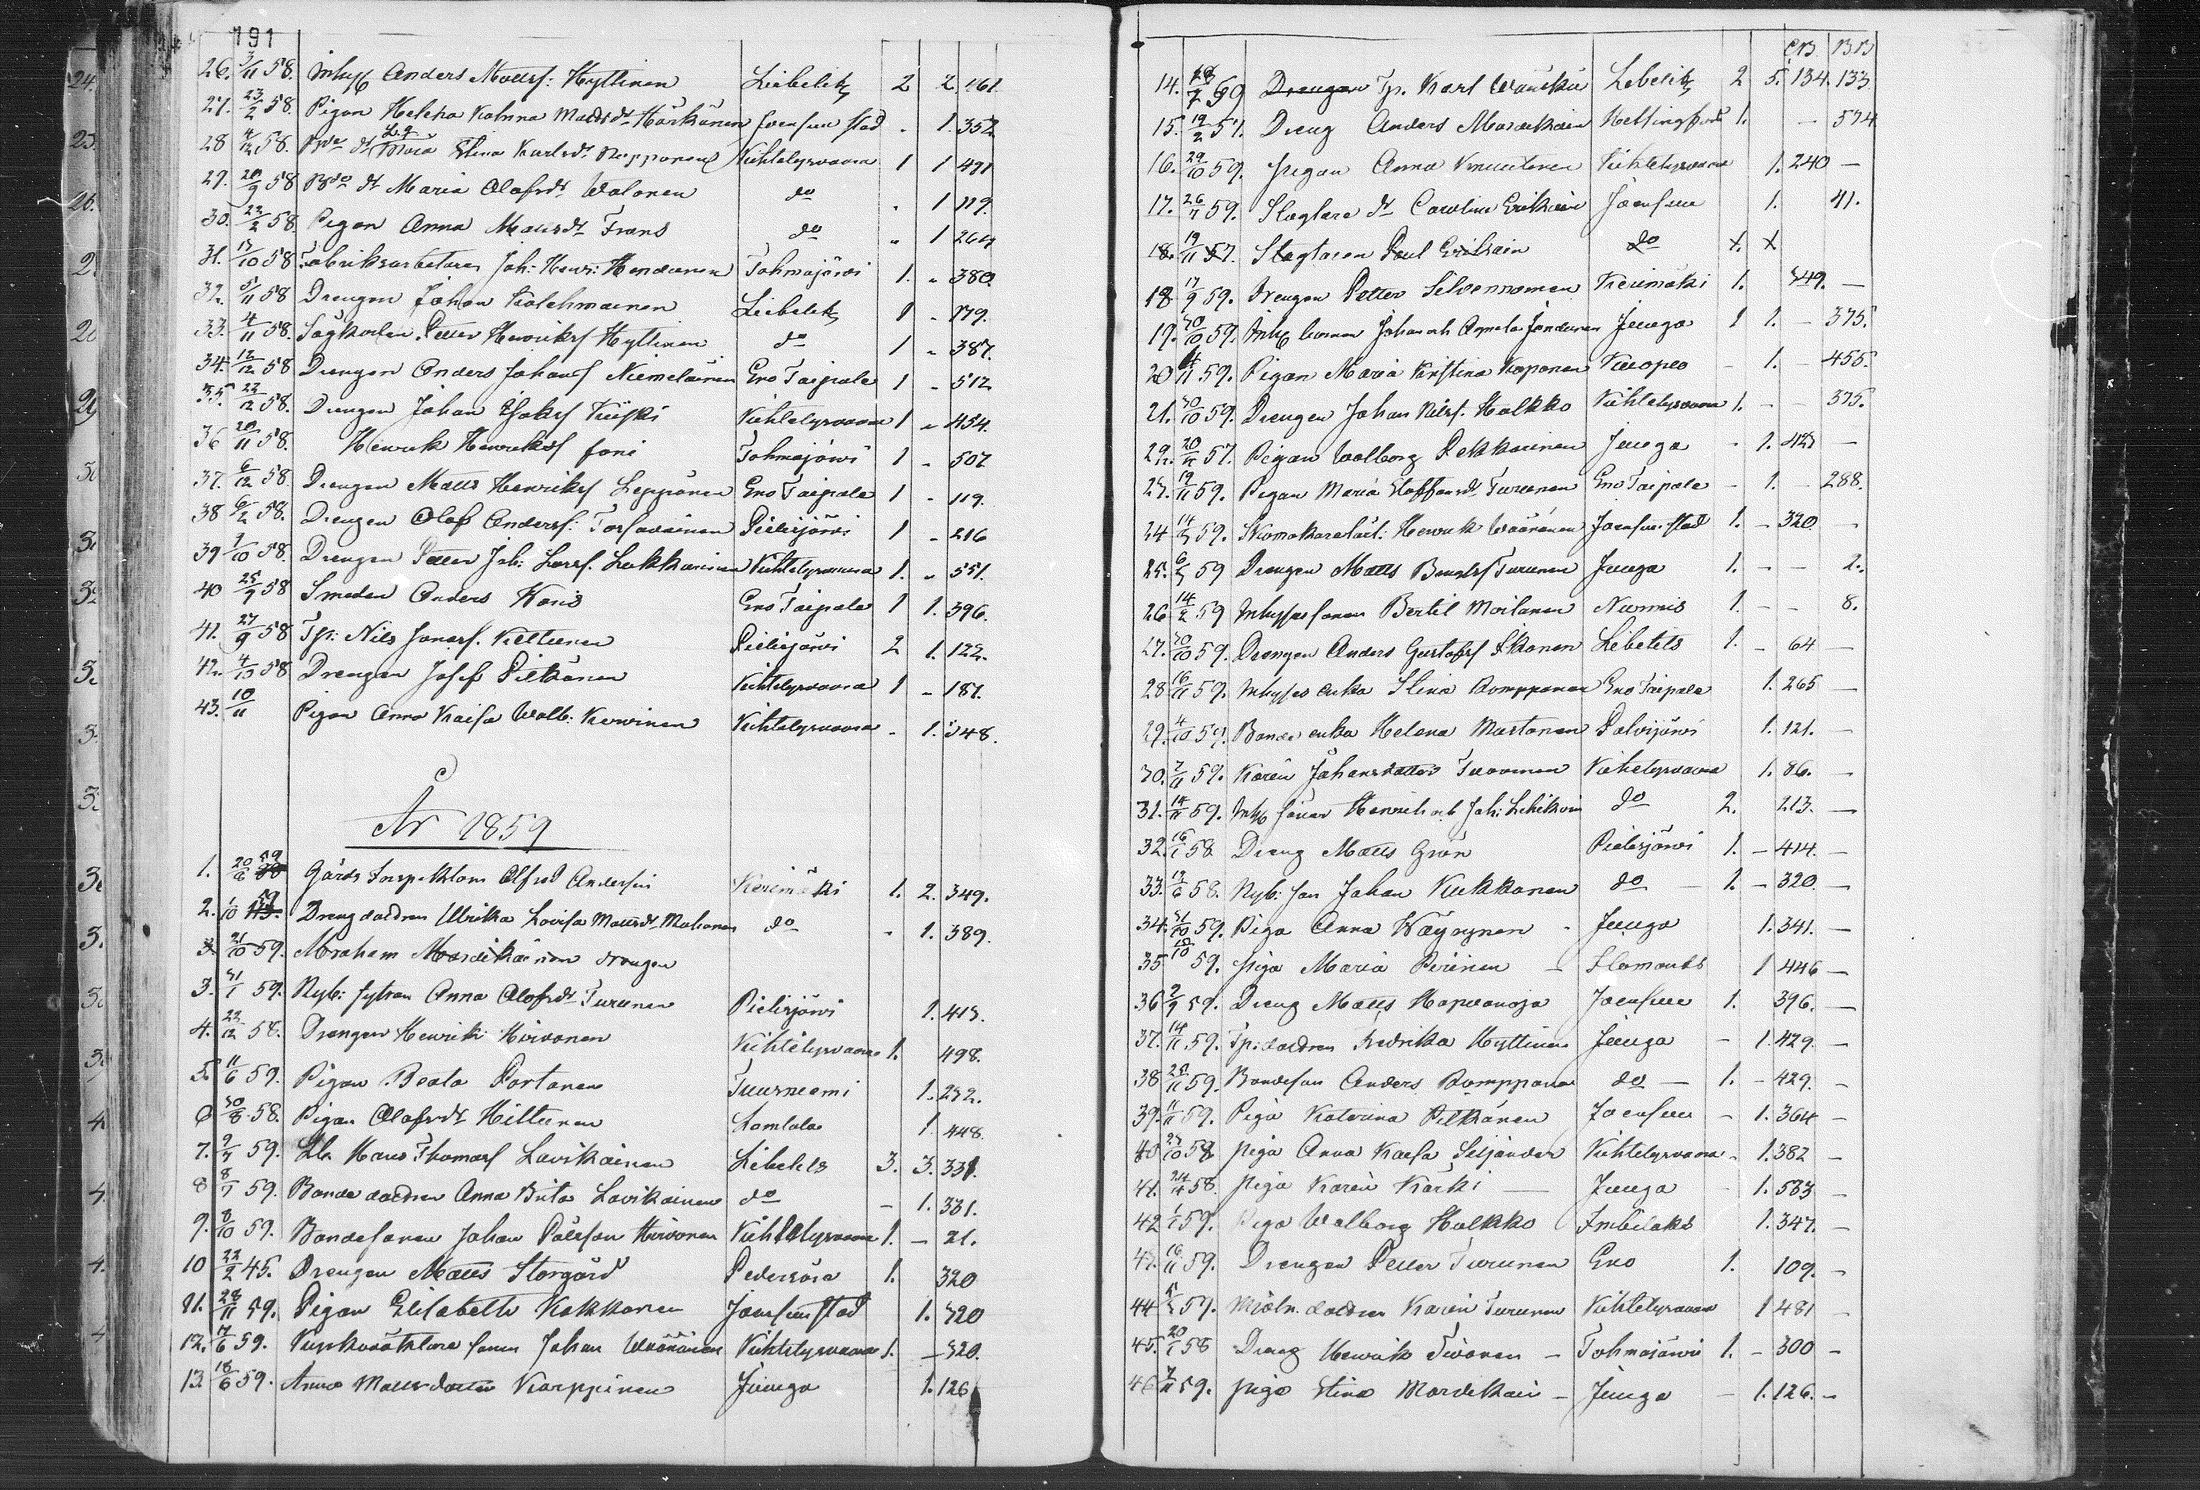 191
26. 3/11 58. Inhys Anders Mattsf. Hyttinen Liebelitz 2 2. 161.
27. 23/2 58. Pigan Helena Katrina Mattsdr Härkönen Joensuu stad - 1. 352
28 4/12 58. Bde dr Stina Karlsdr Nopponen Kihtelysvaara 1 1 491
29. 20/9 58 Bde dr Maria Olofsdr Walonen do . 1 119.
30. 22/2 58. Pigan Anna Mattsdr Frans do " 1 264
31. 13/10 58 Fabriksarbetaren Joh: Henr: Hendunen Tohmajärvi 1. " 380.
32. 5/11 58 Drengen Johan Kolehmainen Liebelitz 1 - 179.
33. 4/11 58. Sågkarlen Petter Henriksf Hyttinen do 1 " 387.
34. 12/12 58 Drengen Anders Johansf Niemeläinen Eno Taipale 1 - 512
35. 22/12 58. Drengen Johan Isaksf Kuiski Kihtelysvaara 1 " 434.
36 20/11 58. Henrik Henriksf Joni Tohmajärvi 1 - 507
37. 6/12 58. Drengen Matts Henriksf Leppänen Eno Taipale 1 - 119.
38 6/2 58. Drengen Olof Andersf: Torfwainen Pielisjärvi 1 - 216
39 7/10 58. Drengen Petter Joh: Larsf. Lukkarinen Kihtelysvaara 1. " 551.
40 25/9 58 Smeden Anders Horis Eno Taipale 1 1. 396.
41. 27/9 58 Tp: Nils Jonasf. Kettunen Pielisjärvi 2 1. 122.
42. 4/10 58 Drengen Josef Pitkänen Kihtelysvaara 1 - 187.
43. 10/11 Pigan Anna Kaisa Walb: Kervinen Kihtelysvaara - 1. 348.
År 1859
1. 20/6 59 Gårds Inspektoren Alfred Anderfin Kerimäki 1. 2. 349.
2. 1/10 59 Drengdottren Ulrika Lovisa Mattsdr Makonen do - 1. 389.
3. 21/10 59. Abraham Mardikainen drengen
3. 31/1 59. Nyb: hustrun Anna Olofsdr Turunen Pielisjärvi 1. 413.
4. 22/12 58. Drengen Henrik Hirvonen Kihtelysvaara 1. 498.
5. 11/6 59. Pigan Beata Portanen Tuusniemi 1. 232.
6 30/8 58. Pigan Olofsdr Hiltunen 1. 448.
7. 9/7 59. Hans Thomasf Lavikainen Libelits 3. 3. 331.
8 8/7 59. Bonde dottren Anna Brita Lavikainen do - 1. 331.
9. 8/10 59. Bondesonen Johan Pålsson Hirvonen Kihtelysvaara 1. - 21.
10 22/2 45. Drengen Matts Storgård Pedersöre 1. 320
11. 28/11 59. Pigan Elisabeth Kokkonen Joensuu stad 1. 320
12. 7/6 59. sonen Johan Wäänänen Kihtelysvaara 1. - 320.
13 18/6 59. Anna Mattsdotter Karppinen Juuga 1. 126
CB BB
14. 18/7 59 Drengen Tp. Karl Wänskä Lebelitz 2 5. 134. 133
15. 19/2 57. Dreng Anders Mardikain Helsingfors 1. - 574
16. 29/10 59. Pigan Anna Kinnunen Kihtelysvaara 1. 240 -
17. 26/7 59. Slagtare dr Carolina Eriksain Joensuu 1. 41.
18. 19/11 57. Slagtaren Paul Eriksain do 1. 1
18 17/9 59. Drengen Petter Silvennoinen Kerimäki 1. 349. -
19. 30/10 59. Inhys Johan och Agneta Jondunen Juuga 1 1. - 375.
20 4/11 59. Pigan Maria Kristina Koponen Kuopio - 1. - 455.
21. 30/10 59. Drengen Johan Nilsf. Halkko Kihtelysvaara 1. - - 375.
22. 20/11 57. Pigan Walborg Pekkarinen Juuga - 1. 423 -
23. 19/11 59. Pigan Maria Staffansdr Turunen Eno Taipale - 1. - 288.
24 14/5 59. Skomakarelärl: Henrik Wäänänen Joensuu stad 1. - 320 -
25. 6/5 59 Drengen Matts Bengtsf Turunen Juuga 1. - - 2.
26 14/2 59 Inhysessonen Bertil Moilanen Nurmis 1. - - 8.
27. 30/10 59. Drengen Anders Gustafsf Ikonen Libelits 1. - 64 -
28 16/11 59. Inhyses enka Stina Romppanen Eno Taipale 1. 265 -
29. 4/10 59. Bonde enka Helena Martonen Polvijärvi 1. 121. -
30. 7/11 59. Karin Johansdotter Tuononen Kihtelysvaara 1. 86. -
31. 14/11 59. Inh: söner Henrik och Joh: Lihikoin do 2. 213. -
32. 16/1 58 Dreng Matts Grön Pielisjärvi 1. - 414. -
33. 13/6 58. Nyb: son Johan Kukkonen do - 1. - 320. -
34. 31/10 59. Piga Anna Wäyrynen - Juuga 1. 341. -
35 18/10 59. Piga Maria Peninen - Ilomants 1 446 -
36 2/9 59. Dreng Matts Hapuanoja Joensuu 1. 396. -
37. 14/11 59. Tp: dottren Fredrika Hyttinen Juuga - 1. 429. -
38 28/11 59. Bondeson Anders Romppanen do - 1. - 429. -
39. 11/11 59. Piga Katrina Pitkänen Joensuu - 1. 364 -
40 23/10 58 Piga Anna Kaisa Siljander Kihtelysvaara - 1. 382 -
41. 24/4 58. Piga Karin Karki - Juuga - 1. 583 -
42 1/1 59. Piga Walborg Halkko Imbilaks 1. 347. -
43. 16/11 59. Drengen Petter Turunen Eno 1. 109. -
44 5/5 59. Mjöln. dottren Karin Turunen Kihtelysvaara 1 481 -
45. 20/1 58 Dreng Henrik Tivonen - Tohmajärvi 1. - 300 -
46 7/11 59. Piga Stina Mardikain - Juuga - 1. 126. -